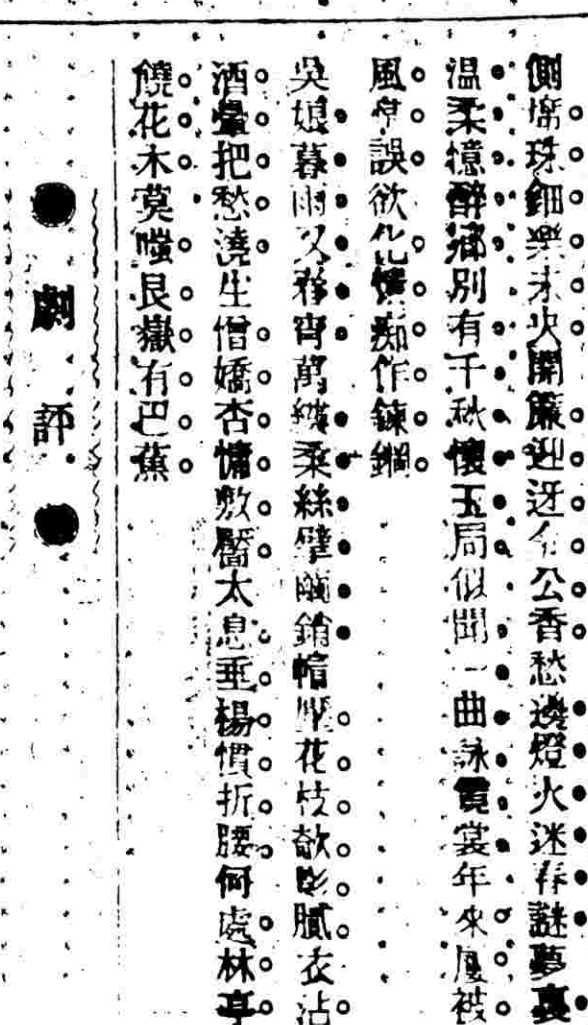 側席珠鈿樂未央開簾迎迓令公香愁邊燈火迷春謎夢裏
温柔憶醉鄉別有千秋懷玉局似聞一曲詠霓裳年來屢被
風誤欲化情痴作鍊鋼
吳娘暮雨又宵萬縷柔絲擘銷帽花枝欹膩衣沾
酒暈把愁澆生僧嬌杏慵敷靨太息垂楊慣折腰何處林亭
饒花木莫嗤艮嶽有巴蕉
●劇評●